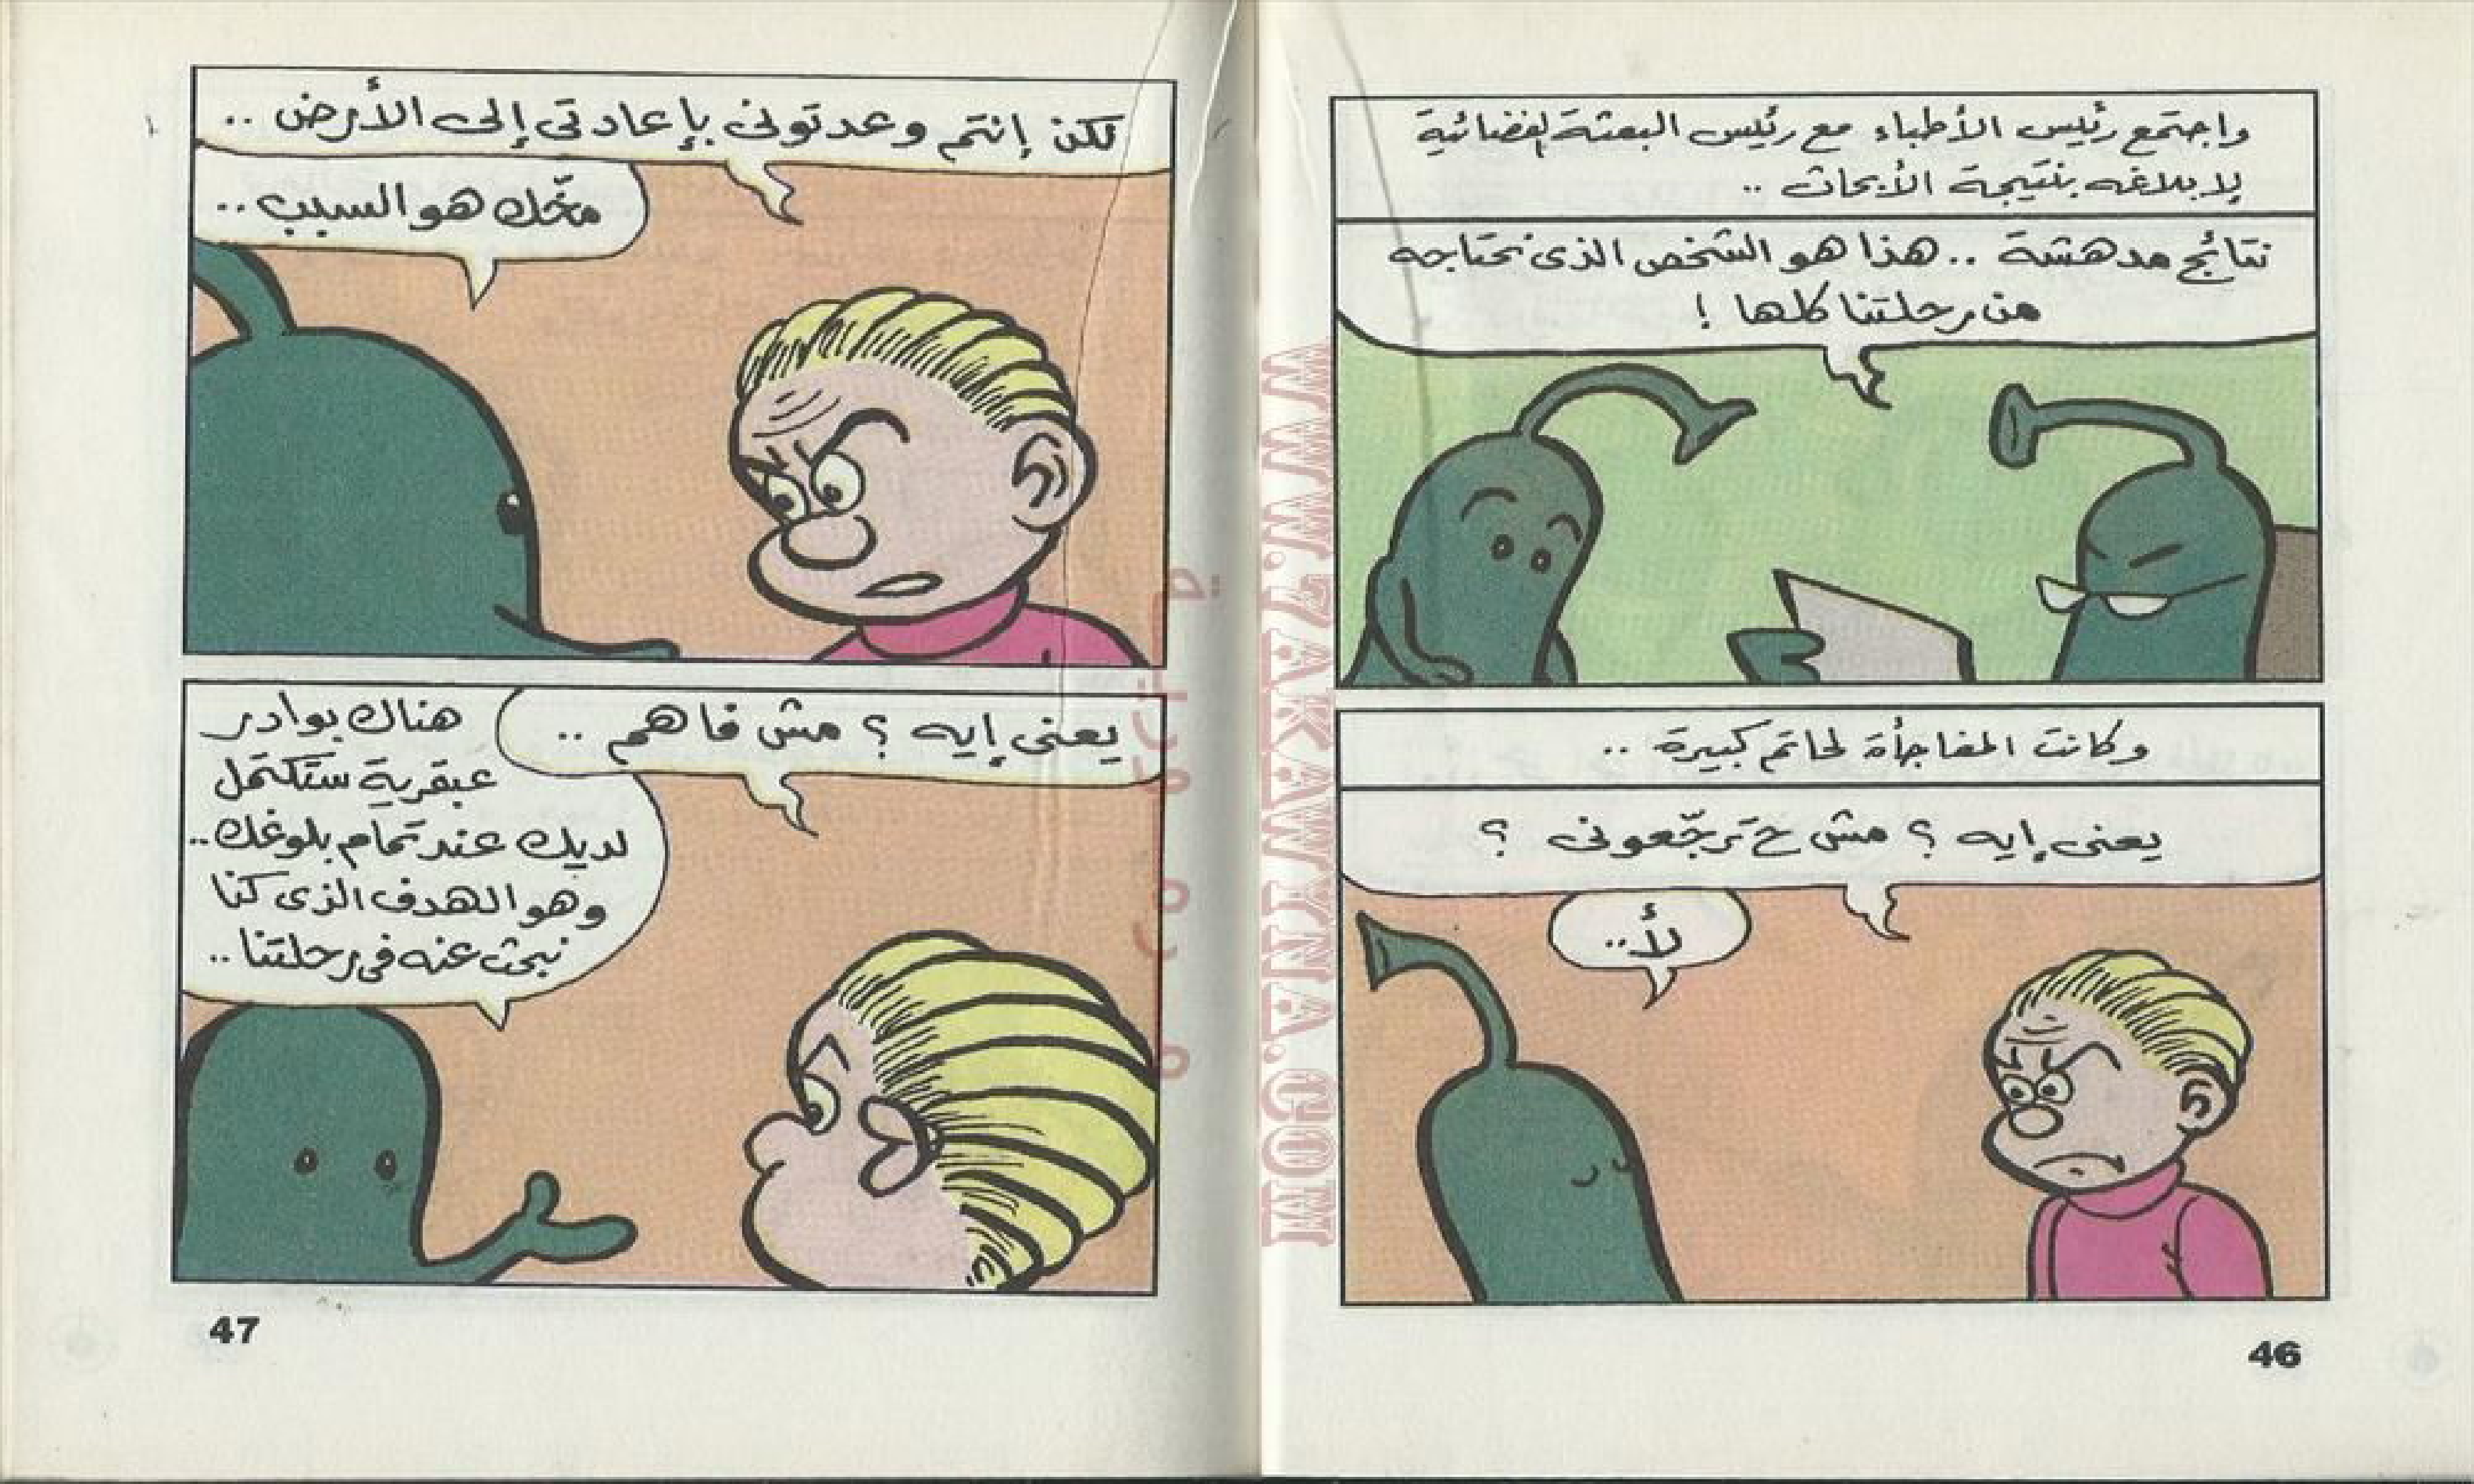 واجتمع رئيس الأطباء مع رئيس البعثة الفضائية
لإبلاغه بنتيجة الأبحاث ..
نتائج مدهشة .. هذا هو الشخص الذى نحتاجه
من رحلتنا كلها !
وكانت المفاجأة لحاتم كبيرة ..
يعنى إيه ؟ مش حَ ترجّعونى ؟
لأ ..
46
لكن إنتم وعدتونى بإعادتى إلى الأرض ..
مخّك هو السبب ..
يعنى إيه ؟ مش فاهم ..
هناك بوادر
عبقرية ستكتمل
لديك عند تمام بلوغك ..
وهو الهدف الذى كنا
نبحث عنه فى رحلتنا ..
47
WWW.7AKAWINA.COM